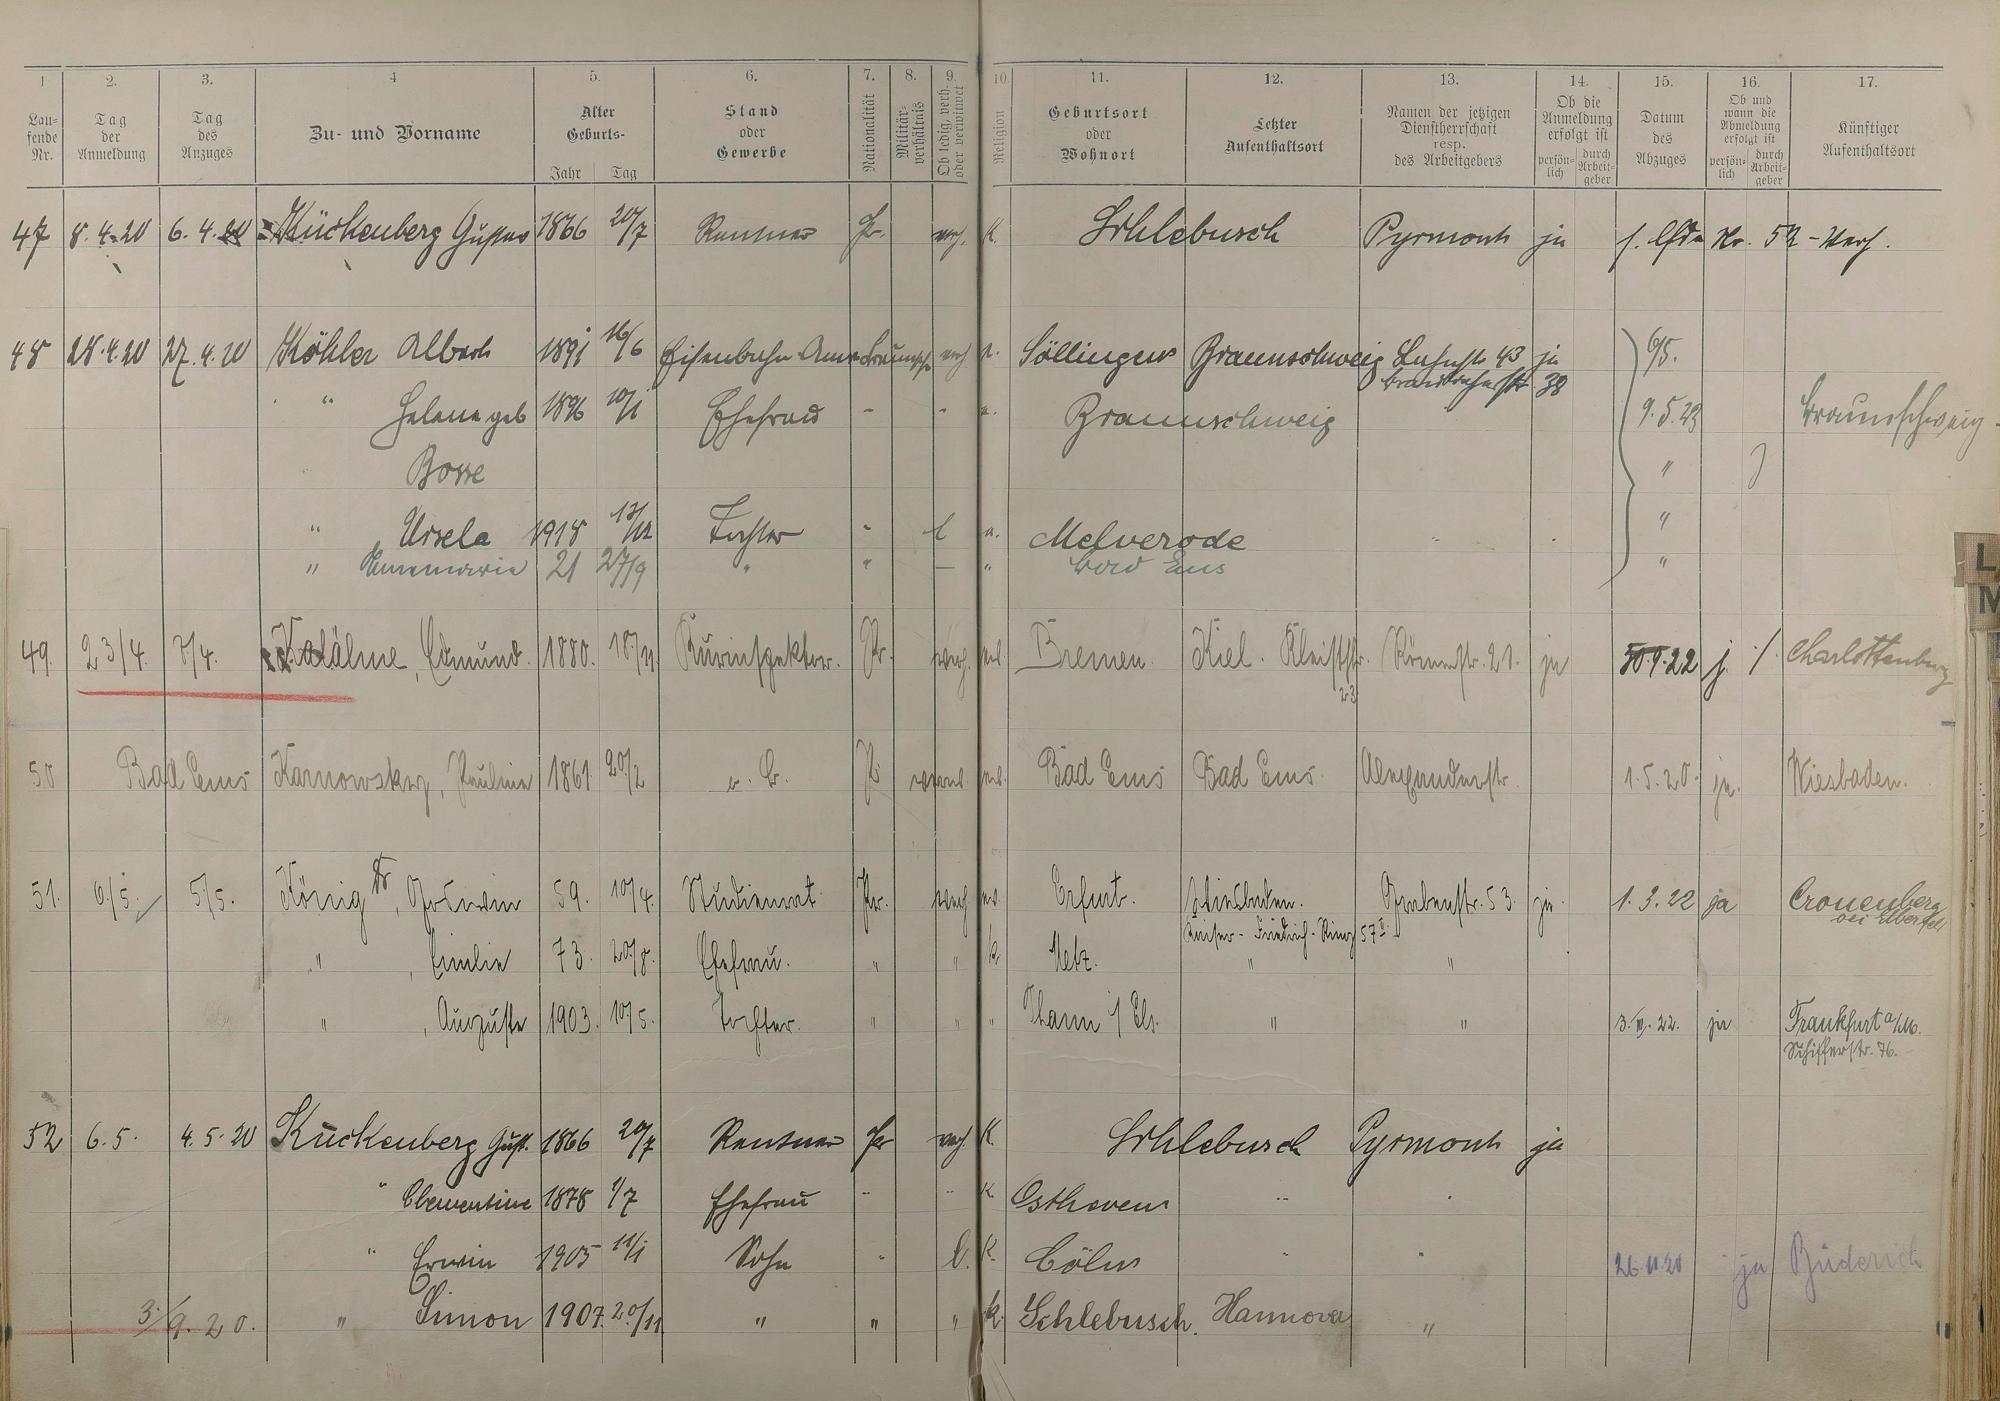 1 2. 3. 4 5. 6. 7. 8. 9. 10. 11. 12. 13. 14. 15. 16. 17.
Lau-
fende
Nr.
Tag
der
Anmeldung
Tag
des
Anzuges
Zu- und Vorname
Alter
Geburts-
Jahr Tag
Stand
oder
Gewerbe
Nationalität
Militär-
verhältnis
Ob ledig, verh.
oder verwitwet
Religion
Geburtsort
oder
Wohnort
Letzter
Aufenthaltsort
Namen der jetzigen
Dienstherrschaft
resp.
des Arbeitgebers
Ob die
Anmeldung
erfolgt ist
persön-
lich
durch
Arbeit-
geber
Datum
des
Abzuges
Ob und
wann die
Abmeldung
erfolgt ist
persön-
lich
durch
Arbeit-
geber
Künftiger
Aufenthaltsort
47 8.4.20 6.4.20 Kückenberg Gustav 1866 20/7 Rentner Pr. verh. K. Schlebusch Pyrmont ja s. lfde Nr. 52
48 28.4.20 27.4.20 Köhler Albert 1891 16/6 Eisenbahn verh Söllingen Braunschweig 43 ja 6/5.
38
" Helene geb 1896 10/1 Ehefrau - - Braunschweig 9.5.23 Braunschweig
" Bosse "
" Ursela 1918 13/12 Tochter " l Melverode "
" Annemarie 21 27/9 " " — " Bad Ems "
49. 23/4. 7/4. Kalähne, Edmund. 1880. 18/11 Kurinspektor. Pr. verh. ev. Bremen. Kiel. Kleiststr. Römerstr. 21. ja 30.9.22 j. / Charlottenburg
23
50 Bad Ems Karnowsky, Pauline 1861 20/2 o. B. P. ev. Bad Ems Bad Ems. Alexanderstr. 1.5.20. ja. Wiesbaden.
51. 6/5. 5/5. König Dr, 59. 10/4. Studienrat Pr. verh. ev. Erfurt. Wiesbaden. Grabenstr. 53. ja 1.3.22 ja Cronenberg
bei Elberfeld
Kaiser-Friedrich-Ring 57
" , Emilie 73. 20/8. Ehefrau. " " k. Metz. " "
" , Auguste 1903. 10/5. Tochter. " " " Thann i/ Els. " " 3. 22. ja Frankfurt a/M.
Schifferstr. 76.
52 6.5. 4.5.20 Kückenberg Gust. 1866 20/7 Rentner Pr verh. K. Schlebusch Pyrmont ja
" Clementine 1878 1/7 Ehefrau " " K. Ostheven " "
" Erwin 1905 11/1 Sohn " l. K. Cöln " " 26.11.20 ja Büderich
3/9.20. " Simon 1907 20/11 " " " k. Schlebusch. Hannover "